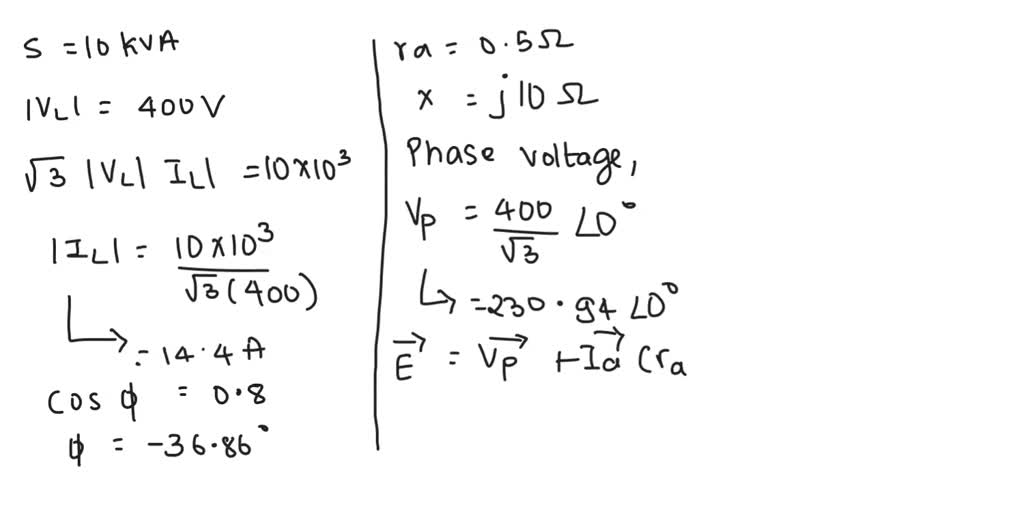 S = 10 kVA
|VL| = 400 V
√3 |VL| IL| = 10×10³
|IL| = 10×10³ / √3 (400)
= 14.4 A
cos ϕ = 0.8
ϕ = -36.86°
ra = 0.5Ω
x = j10 Ω
Phase voltage,
Vp = 400 / √3 ∠0°
= 230.94 ∠0°
E⃗ = V⃗p + I⃗a (ra